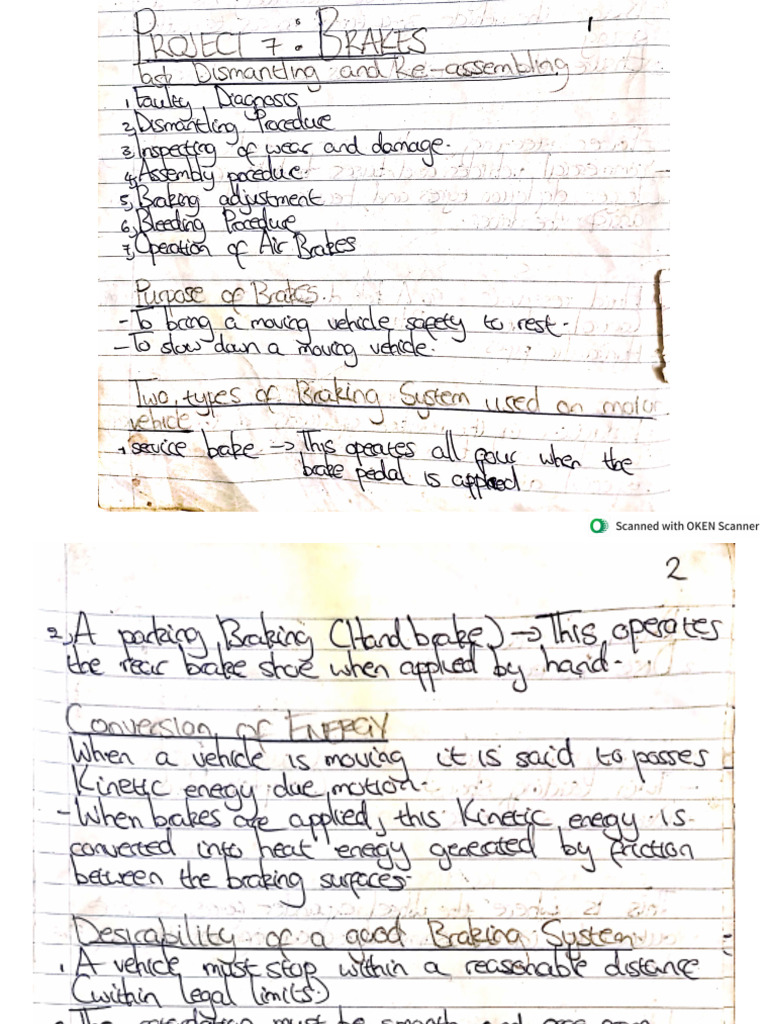 PROJECT 7: BRAKES
1
Task Dismantling and Re-assembling
1, Faulty Diagnosis
2, Dismantling Procedure
3, Inspecting of wear and damage.
4, Assembly pocedure
5, Braking adjustment
6, Bleeding Procedure
7, Operation of Air Brakes
Purpose of Brakes.
- To bring a moving vehicle safety to rest.
- To slow down a moving vehicle.
Two, types of Braking System used on motor
vehicle.
1, service bake → This operates all four when the
brake pedal is applied
Scanned with OKEN Scanner
2
2, A parking Braking (Hand brake) → This, operates
the rear brake shoe when applied by hand.
Conversion of ENERGY
When a vehicle is moving it is said to posses
Kinetic energy due motion.
- When bakes are applied, this Kinetic energy is
converted into heat energy generated by friction
between the braking surfaces.
Desirability of a good Braking System
1. A vehicle must stop within a reasonable distance
(within legal limits)